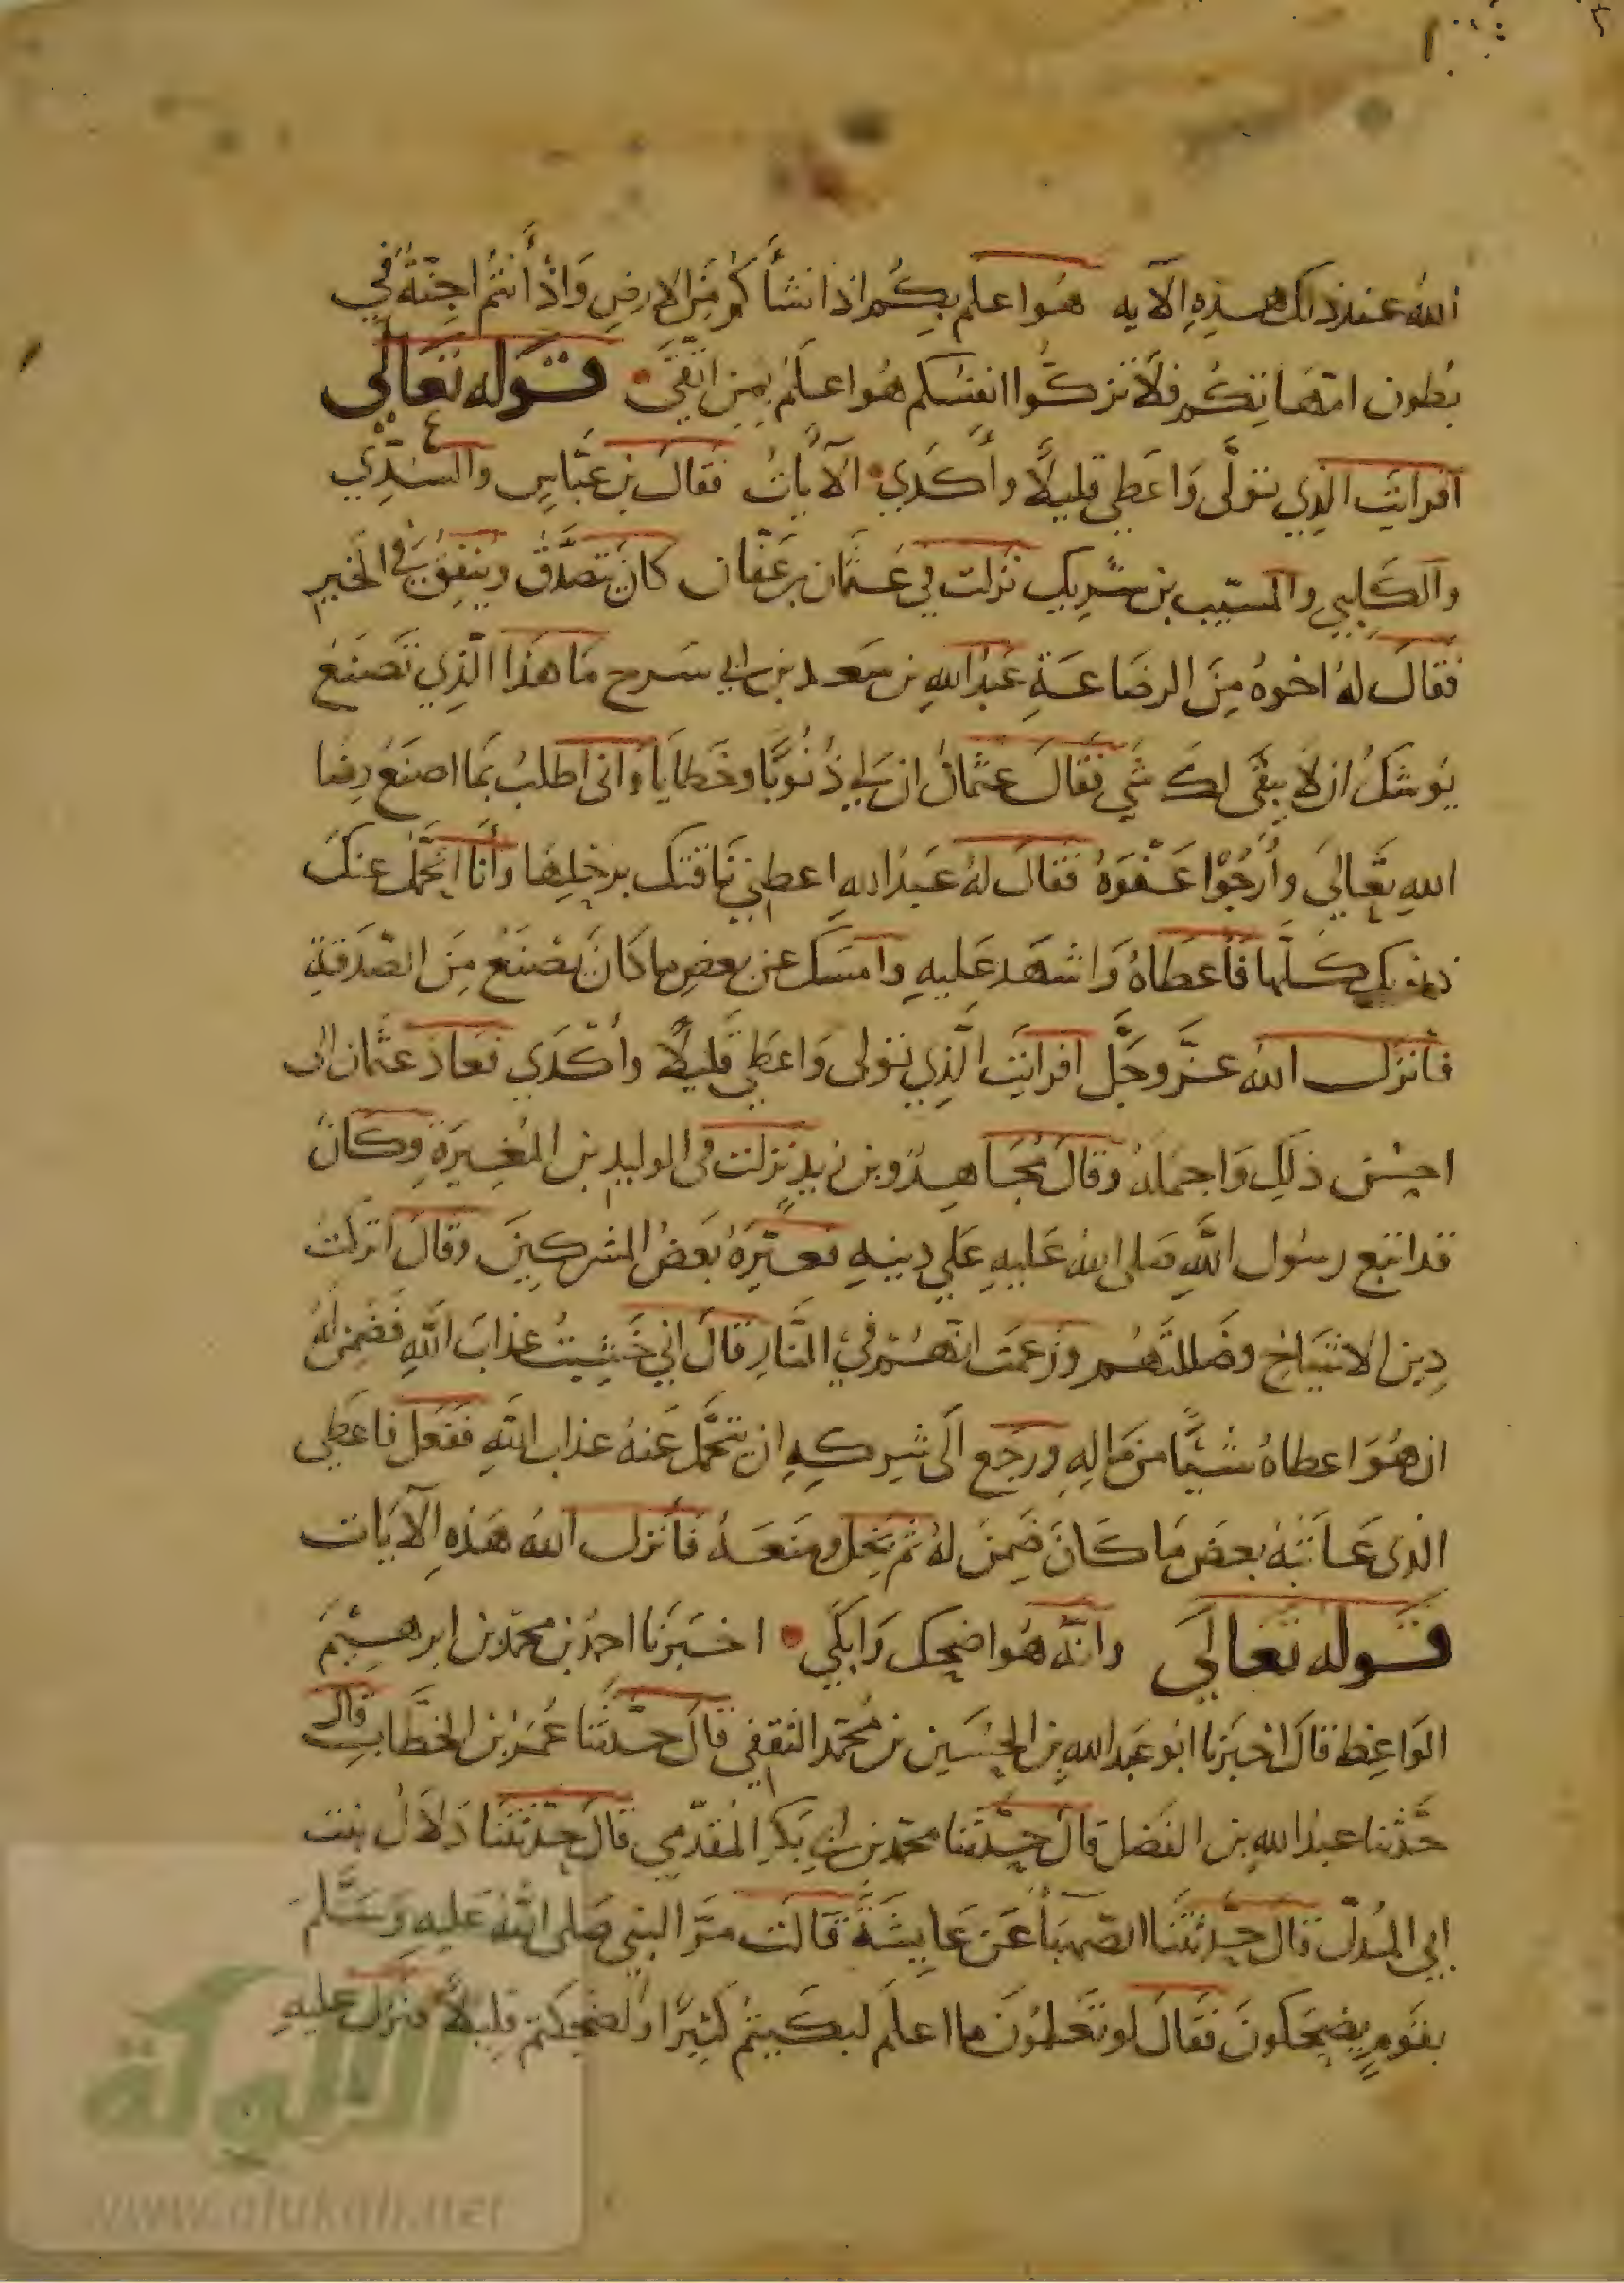 الله عند ذلك هذه الآيه هُوَ اعلم بِكُم اذ انشأكُم مِنَ الارضِ وَاذْ أنتُم اجِنّةٌ في
بُطون امّهَاتِكُم فلَا تزكُّوا انفسَكم هُوَ اعلمُ بِمَنِ اتَّقَى قوله تعالى
افرايتَ الذِي تولَّى وَاعطى قليلًا وأكدَي الآيَاتُ فقالَ بن عبَّاسٍ والسُّدِّي
والكَلبيِ والمسَيّب بن شَرِيكٍ نزلت في عُثمان بن عَفّان كانَ يتصَدَّقُ ويُنفِقُ في الخَيرِ
فقالَ لهُ اخوهُ مِنَ الرضَاعَةِ عَبْدُ اللهِ بن سَعد بن ابي سَرح مَا هَذَا الَّذِي تَصنَعُ
يُوشكُ ان لا يبقَى لكَ شَي فقَالَ عثمَانُ ان لي ذُنُوبًا وخَطايَا وَاني اطلبُ بمَا اصنَعُ رِضَا
اللهِ تَعَالَى وأَرجُوا عَفْوَهُ فقالَ لهُ عَبدُ اللهِ اعطِني نَاقتكَ برَحْلِهَا وَأنَا اتحَمَّلُ عنكَ
ذنوبك كلّها فَأعطَاهُ وَاشهَد عَليهِ وامسَكَ عن بعضِ ما كَانَ يَصْنَعُ مِنَ الصّدَقَةِ
فأنزلَ اللهُ عزَّ وجَلَّ افرايَتَ الَّذِي تولى وَاعطي قليلًا وأكْدَي فعَادَ عثمان الى
احسَن ذلِكَ وَاجمَلهُ وقالَ مُجَاهِدٌ وبن زيدٍ نزلت في الوليدِ بن المُغِيرَةِ وكانَ
قد اتبع رسُول اللهِ صَلى اللهُ عَليهِ عَلي دِينهِ فعَيّرَهُ بَعضُ المشركِينَ وقالَ اتركتَ
دِين الاشيَاخِ وضَللتَهُم وزعَمتَ انّهُم فيْ النَّارِ قالَ اني خَشِيتُ عذابَ اللهِ فَضَمِنَ لهُ
ان هُوَ اعطاهُ شيًّا من مَالِهِ ورجَع الَى شِركِهِ ان يتحَمَّلَ عَنهُ عذاب اللهِ ففَعَل فاعَطى
الذى عَاتَبَهُ بعضَ مَا كَانَ ضَمِنَ لهُ ثم بَخِلَ ومنَعَهُ فأنزلَ اللهُ هَذِهِ الآيَات
قوله تَعالَى وانّه هُوَ اضحك وَابكَي اخبَرنَا احمَدُ بن محمّد بن ابرهِيْمَ
الوَاعِظُ قالَ اخبَرنا ابُو عَبد اللهِ بن الحُسَين بن مُحمّد الثقفي قالَ حدّثَنا عُمَرُ بن الخطَّابِ قالَ
حَدّثنا عبدُ اللهِ بن الفَضل قالَ حدّثنا محمّد بن ابي بَكر المُقدّمي قالَ حدّثَتنَا دَلَالُ بنت
ابي المُدلّ قالَ حدّثتنَا الصّهبَا عَن عَايِشَةَ قالَت مرَّ النبي صَلى اللهُ عَليهِ وَسَلَّمَ
بقَومٍ يضحَكونَ فقَالَ لو تَعلمُونَ ما اعلَم لبَكَيتُم كَثيِرًا ولضحِكتم قليلًا فنزلَ عليهِ
الألوكة
www.alukah.net